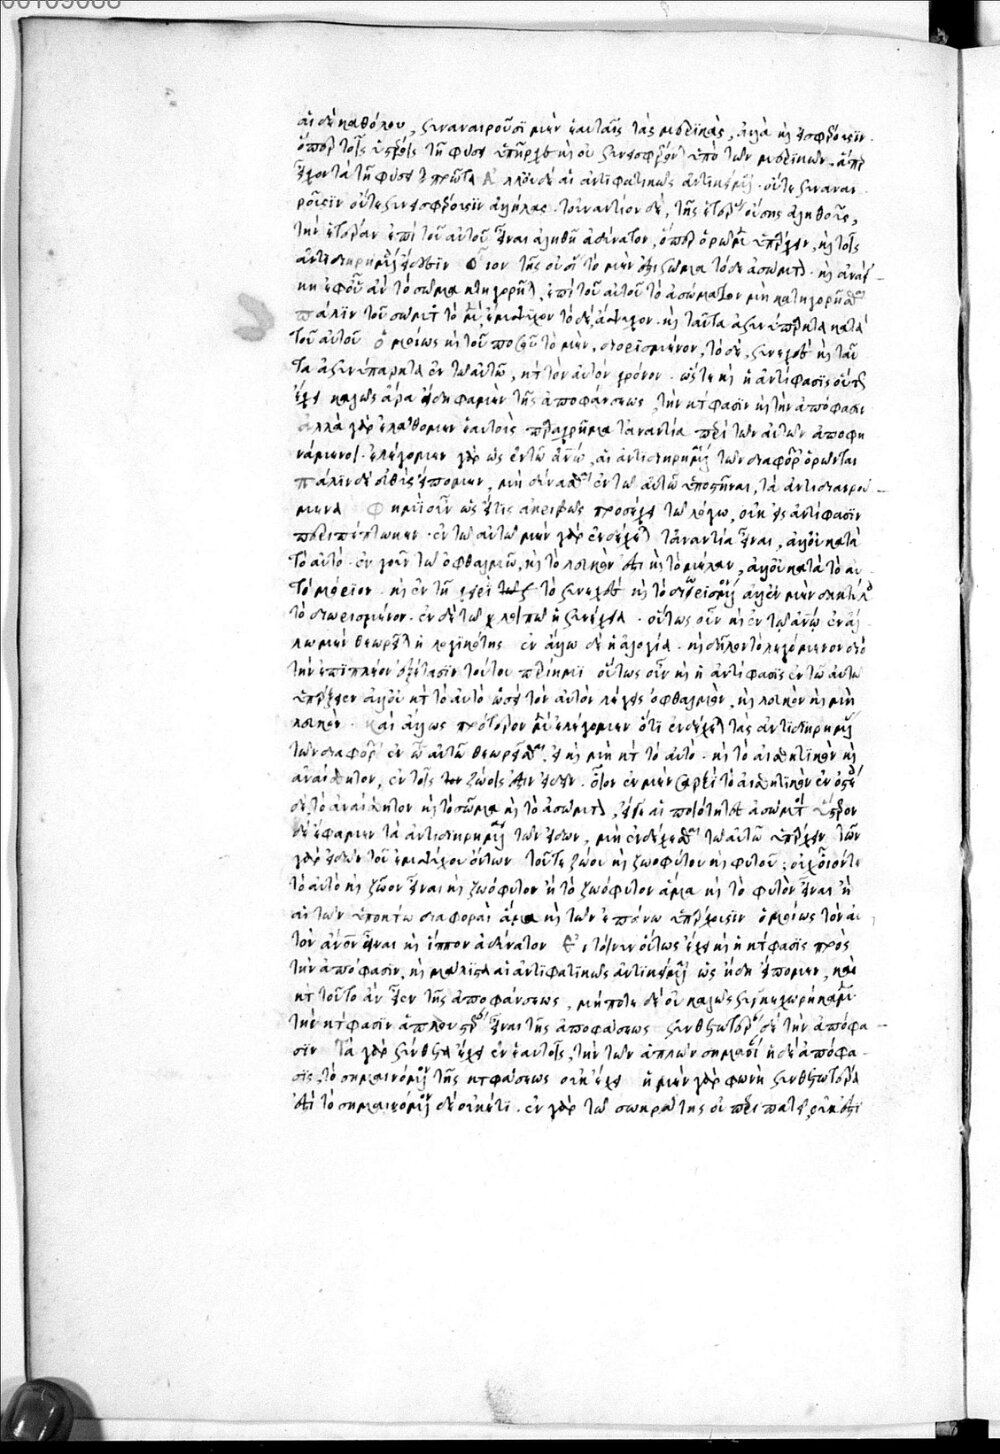 αἱ δὲ καθόλου, συναναιροῦσι μὲν ἑαυταῖς τὰς μερικὰς, ἀλλὰ καὶ εἰσφέρουσιν
ὅπερ τοῖς ὑστέροις τῇ φύσει ὑπῆρχε καὶ οὐ συνεισφέρονται ὑπὸ τῶν μερικῶν
ἔχοντα τῇ φύσει πρῶτα Ἀλλ' οὐδὲ αἱ ἀντιφατικῶς ἀντικείμεναι οὔτε συναναι
ροῦσιν οὔτε συνεισφέρουσιν ἀλλήλας. τοὐναντίον δὲ, τῆς ἑτέρας οὔσης ἀληθοῦς,
τὴν ἑτέραν ἐπὶ τοῦ αὐτοῦ εἶναι ἀληθῆ ἀδύνατον, ὅπερ ὁρῶμεν ὑπάρχειν, καὶ τοῖς
ἀντιδιῃρημένοις εἴδεσιν οἷον τῆς οὐσίας τὸ μὲν ἐστι σῶμα τὸ δὲ ἀσώματον. καὶ ἀνάγ
κη ἐφ' οὗ ἂν τὸ σῶμα κατηγορῆται, ἐπὶ τοῦ αὐτοῦ τὸ ἀσώματον μὴ κατηγορεῖσθαι
πάλιν τοῦ σώματος τὸ μὲν ἔμψυχον τὸ δὲ, ἄψυχον. καὶ ταῦτα ἀσυνύπαρκτα κατὰ
τοῦ αὐτοῦ ὁμοίως καὶ τοῦ ποσοῦ τὸ μὲν, διωρισμένον, τὸ δὲ, συνεχές καὶ ταῦ
τα ἀσυνύπαρκτα ἐν τῷ αὐτῷ, κατὰ τὸν αὐτὸν χρόνον. ὥστε καὶ ἡ ἀντίφασις οὕτως
ἔχει καλῶς ἄρα εἴδη φαμὲν τῆς ἀποφάνσεως, τὴν κατάφασιν καὶ τὴν ἀπόφασιν
ἀλλὰ γὰρ ἐλάθομεν ἑαυτοὺς παραχρῆμα τἀναντία περὶ τῶν αὐτῶν ἀποφη
νάμενοι. ἐλέγομεν γὰρ ὡς ἐν τῷ ἀνθρώπῳ, αἱ ἀντιδιῃρημέναι τῶν διαφορῶν ὁρῶνται
πάλιν δὲ εὐθὺς εἴπομεν, μὴ δύνασθαι ἐν τῷ αὐτῷ ὑποστῆναι, τὰ ἀντιδιαιρού
μενα Φημὶ οὖν ὡς εἴ τις ἀκριβῶς προσέχει τῷ λόγῳ, οὐκ εἰς ἀντίφασιν
περιπέπτωκεν. ἐν τῷ αὐτῷ μὲν γὰρ ἐνδέχεται τἀναντία εἶναι, ἀλλ' οὐ κατὰ
τὸ αὐτό. ἐν γοῦν τῷ ὀφθαλμῷ, καὶ τὸ λευκόν ἐστι καὶ τὸ μέλαν, ἀλλ' οὐ κατὰ τὸ αὐ
τὸ μόριον. καὶ ἐν τῇ χειρὶ τὸ συνεχές καὶ τὸ διωρισμένον
τὸ διωρισμένον. ἐν δὲ τῷ χ λοιπῷ ἡ συνέχεια. οὕτως οὖν καὶ ἐν τῷ ἀνθρώπῳ ἐν ἄλ
λῳ μὲν θεωρεῖται ἡ λογικότης ἐν ἄλλῳ δὲ ἡ ἀλογία. καὶ δῆλον τὸ λεγόμενον διὸ
τὴν ἐπιπλέον ἐξέτασιν τούτου παρίημι οὕτως οὖν καὶ ἡ ἀντίφασις ἐν τῷ αὐτῷ
ὑπάρχει ἀλλ' οὐ κατὰ τὸ αὐτό ὥστε τὸν αὐτὸν λέγεις ὀφθαλμὸν, καὶ λευκὸν καὶ μὴ
λευκόν. Καὶ ἄλλως πρότερον μὲν ἐλέγομεν ὅτι ἐνδέχεται τὰς ἀντιδιῃρημένας
τῶν διαφορῶν ἐν τῷ αὐτῷ θεωρεῖσθαι, εἰ καὶ μὴ κατὰ τὸ αὐτό. καὶ τὸ αἰσθητικὸν καὶ
ἀναίσθητον, ἐν τοῖς ζώοις ἐστιν ἰδεῖν. οἷον ἐν μὲν σαρκὶ τὸ αἰσθητικὸν ἐν ὀστοῖς
δὲ τὸ ἀναίσθητον καὶ τὸ σῶμα καὶ τὸ ἀσώματον, εἴγε αἱ ποιότητες ἀσώματοι ὕστερον
δὲ ἔφαμεν τὰ ἀντιδιῃρημένα τῶν εἰδῶν, μὴ ἐνδέχεσθαι τῷ αὐτῷ ὑπάρχειν τῶν
γὰρ εἰδῶν τοῦ ἐμψύχου ὄντων τοῦτε ζώου καὶ ζωοφύτου καὶ φυτοῦ: οὐχ οἷόν τε
τὸ αὐτὸ καὶ ζῶον εἶναι καὶ ζωόφυτον ἢ τὸ ζωόφυτον ἅμα καὶ τὸ φυτὸν εἶναι ἢ
αἱ τῶν ὑποκάτω διαφοραὶ ἅμα καὶ τῶν ἐπάνω ὑπάρχουσιν ὁμοίως τὸν αὐ
τὸν ἄνθρωπον εἶναι καὶ ἵππον ἀδύνατον Εἰ τοίνυν οὕτως ἔχει καὶ ἡ κατάφασις πρὸς
τὴν ἀπόφασιν, καὶ μάλιστα αἱ ἀντιφατικῶς ἀντικείμεναι ὡς ἤδη εἴπομεν, καὶ
κατὰ τοῦτο ἂν εἶεν τῆς ἀποφάνσεως, μήποτε δὲ οὐ καλῶς συγκεχωρήκαμεν
τὴν κατάφασιν ἁπλουστέραν εἶναι τῆς ἀποφάσεως συνθετωτέραν δὲ τὴν ἀπόφα
σιν Τὰ γὰρ σύνθετα ἔχει ἐν ἑαυτοῖς, τὴν τῶν ἁπλῶν σημασίαν ἡ δὲ ἀπόφα
σις, τὸ σημαινόμενον τῆς καταφάσεως οὐκ ἔχει ἡ μὲν γὰρ φωνὴ συνθετωτέρα
ἐστι τὸ σημαινόμενον δὲ οὐκέτι. ἐν γὰρ τῷ σωκράτης οὐ περιπατεῖ, οὐκ ἔστι